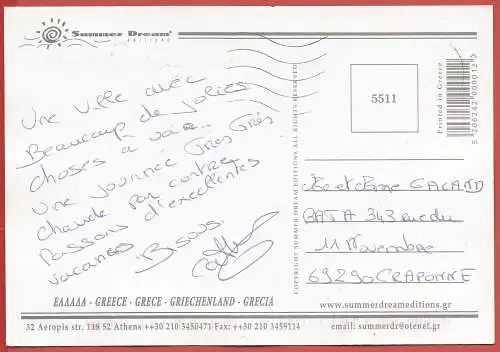 Summer Dream
EDITIONS
Une ville avec
Beaucoup de jolies
choses à voir...
Une journée Très Très
chaude par contre
Passons d'excellentes
vacances
Bisous.
5511
Printed in Greece
5 206242 000012
COPYRIGHT SUMMER DREAM EDITIONS ALL RIGHTS RESERVED
GACAND
BATA 343 rue du
11 Novembre
69290 CRAPONNE
ΕΛΛΑΔΑ - GREECE - GRECE - GRIECHENLAND - GRECIA
www.summerdreameditions.gr
32 Aeropis str. 118 52 Athens ++30 210 3450471 Fax: ++30 210 3459114
email: summerdr@otenet.gr